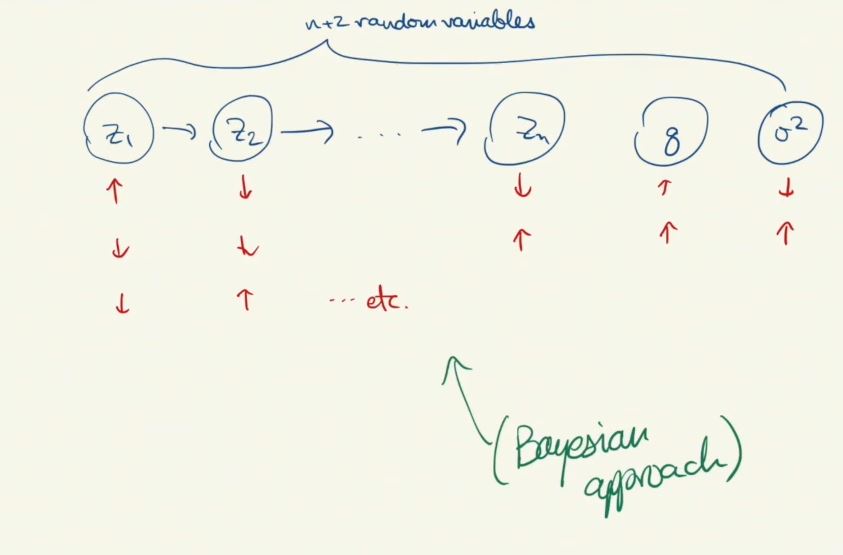 n+2 random variables
z₁ → z₂ → ... → zₙ 8 σ²
↑ ↓ ↓ ↑ ↓
↓ ↓ ↑ ↑ ↑
↓ ↑ ... etc.
(Bayesian
approach)